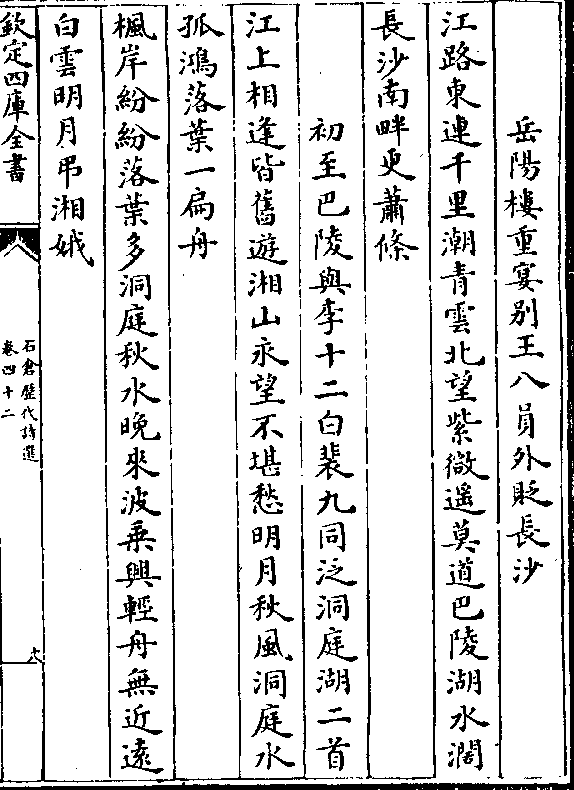 岳陽樓重宴别王八員外貶長沙
江路東連千里潮青雲北望紫微遥莫道巴陵湖水濶
長沙南畔更蕭條
初至巴陵與李十二白裴九同泛洞庭湖二首
江上相逢皆舊遊湘山永望不堪愁明月秋風洞庭水
孤鴻落葉一扁舟
楓岸紛紛落葉多洞庭秋水晚來波乗興輕舟無近遠
白雲明月弔湘娥
欽定四庫全書
石倉歴代詩選
卷四十二
十八